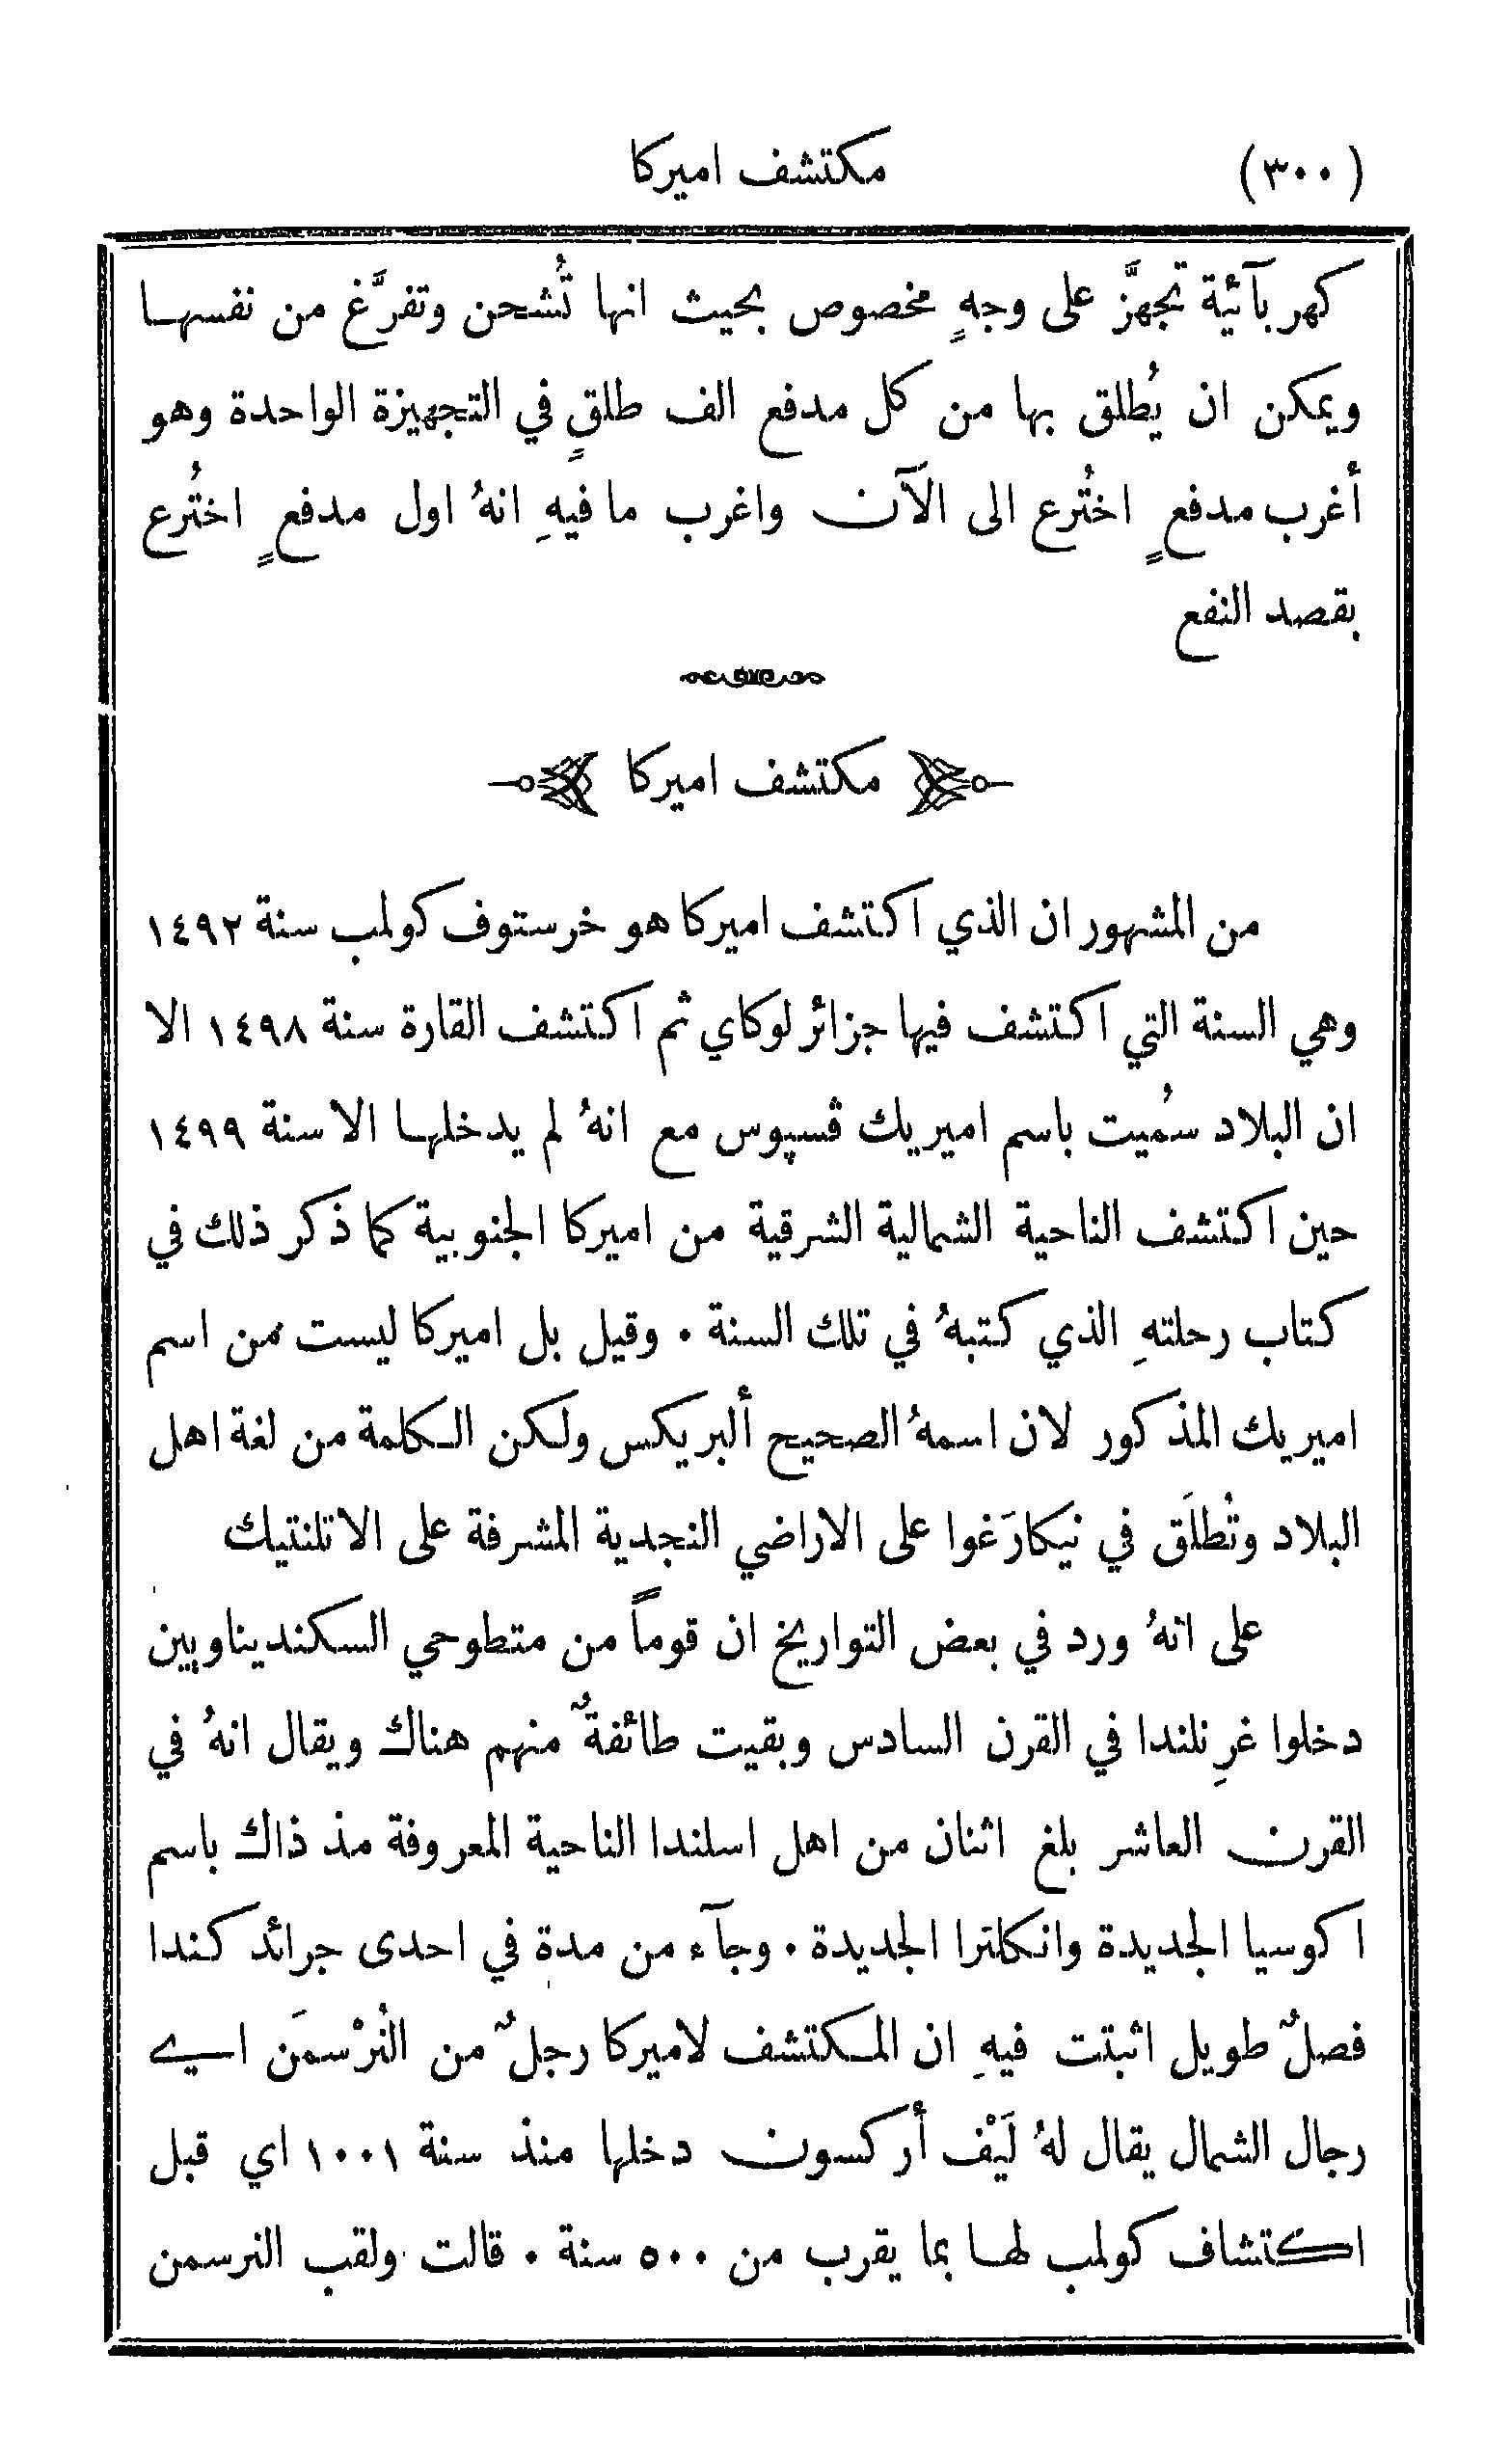 (٣٠٠) مكتشف اميركا
كهربآئية تجهزَّ على وجهٍ مخصوص بحيث انها تُشحن وتفرَّغ من نفسها
ويمكن ان يُطلق بها من كل مدفع الف طلقٍ في التجهيزة الواحدة وهو
أغرب مدفعٍ اختُرع الى الآن واغرب ما فيهِ انهُ اول مدفعٍ اختُرع
بقصد النفع
مكتشف اميركا
من المشهور ان الذي اكتشف اميركا هو خرستوف كولمب سنة ١٤٩٢
وهي السنة التي اكتشف فيها جزائر لوكاي ثم اكتشف القارة سنة ١٤٩٨ الا
ان البلاد سُميت باسم اميريك ڤسپوس مع انهُ لم يدخلها الا سنة ١٤٩٩
حين اكتشف الناحية الشمالية الشرقية من اميركا الجنوبية كما ذكر ذلك في
كتاب رحلتهِ الذي كتبهُ في تلك السنة ٠ وقيل بل اميركا ليست من اسم
اميريك المذكور لان اسمهُ الصحيح ألبريكس ولكن الكلمة من لغة اهل
البلاد وتُطلَق في نيكارَغوا على الاراضي النجدية المشرفة على الاتلنتيك
على انهُ ورد في بعض التواريخ ان قوماً من متطوحي السكنديناويين
دخلوا غرِنلندا في القرن السادس وبقيت طائفةٌ منهم هناك ويقال انهُ في
القرن العاشر بلغ اثنان من اهل اسلندا الناحية المعروفة مذ ذاك باسم
اكوسيا الجديدة وانكلترا الجديدة ٠ وجآء من مدة في احدى جرائد كندا
فصلٌ طويل اثبتت فيهِ ان المكتشف لاميركا رجلٌ من النُرْسمَن اي
رجال الشمال يقال لهُ لَيْف أركسون دخلها منذ سنة ١٠٠١ اي قبل
اكتشاف كولمب لها بما يقرب من ٥٠٠ سنة ٠ قالت ولقب النرسمن